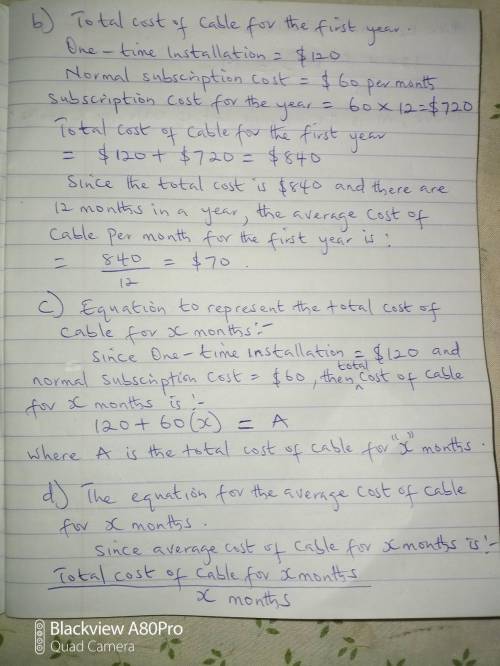 b) Total cost of Cable for the first year.
One-time Installation = $120
Normal subscription cost = $60 per month
Subscription cost for the year = 60 × 12 = $720
Total cost of Cable for the first year
= $120 + $720 = $840
Since the total cost is $840 and there are
12 months in a year, the average cost of
Cable per month for the first year is:
= 840/12 = $70.
c) Equation to represent the total cost of
Cable for x months:-
Since One-time Installation = $120 and
normal subscription cost = $60, then total cost of Cable
for x months is:-
120 + 60(x) = A
where A is the total cost of cable for "x" months.
d) The equation for the average cost of Cable
for x months.
Since average cost of cable for x months is:-
Total cost of cable for x months
x months
Blackview A80Pro
Quad Camera